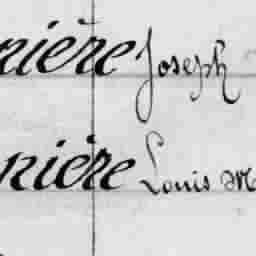 nière Joseph
nière Louis M